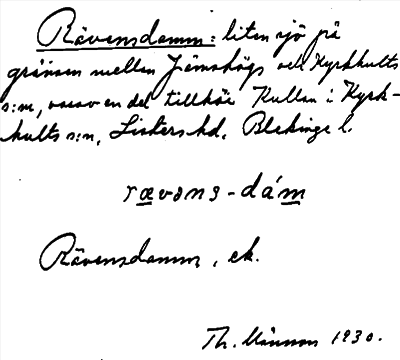 Rävensdamm: liten sjö på
gränsen mellan Jämshögs och Kyrkhults
s:nr, varav en del tillhör Kullan i Kyrk-
hults s:n, Listers hd. Blekinge l.
rævəns-dám
Rävensdamm, ek.
Th. Månsson 1930.